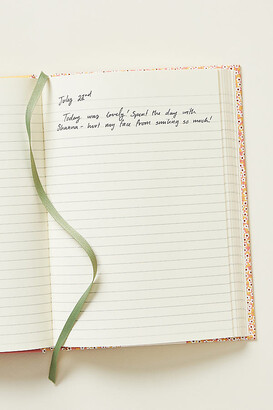 July 22nd
Today was lovely! Spent the day with
- hurt my face from smiling so much!